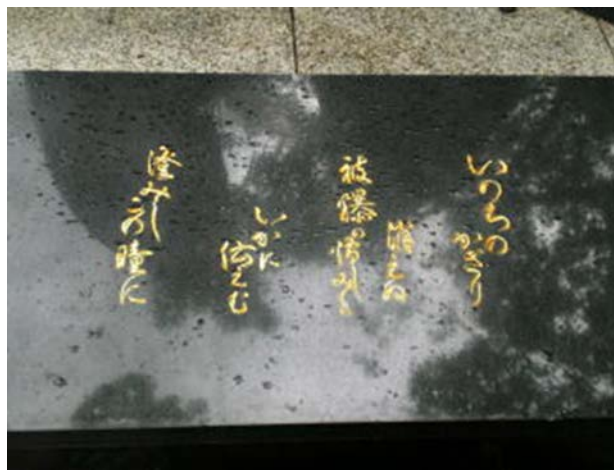 いのちの
かぎり
消えぬ
被曝の傷みを
いかに
傳えむ
澄みし
この瞳に